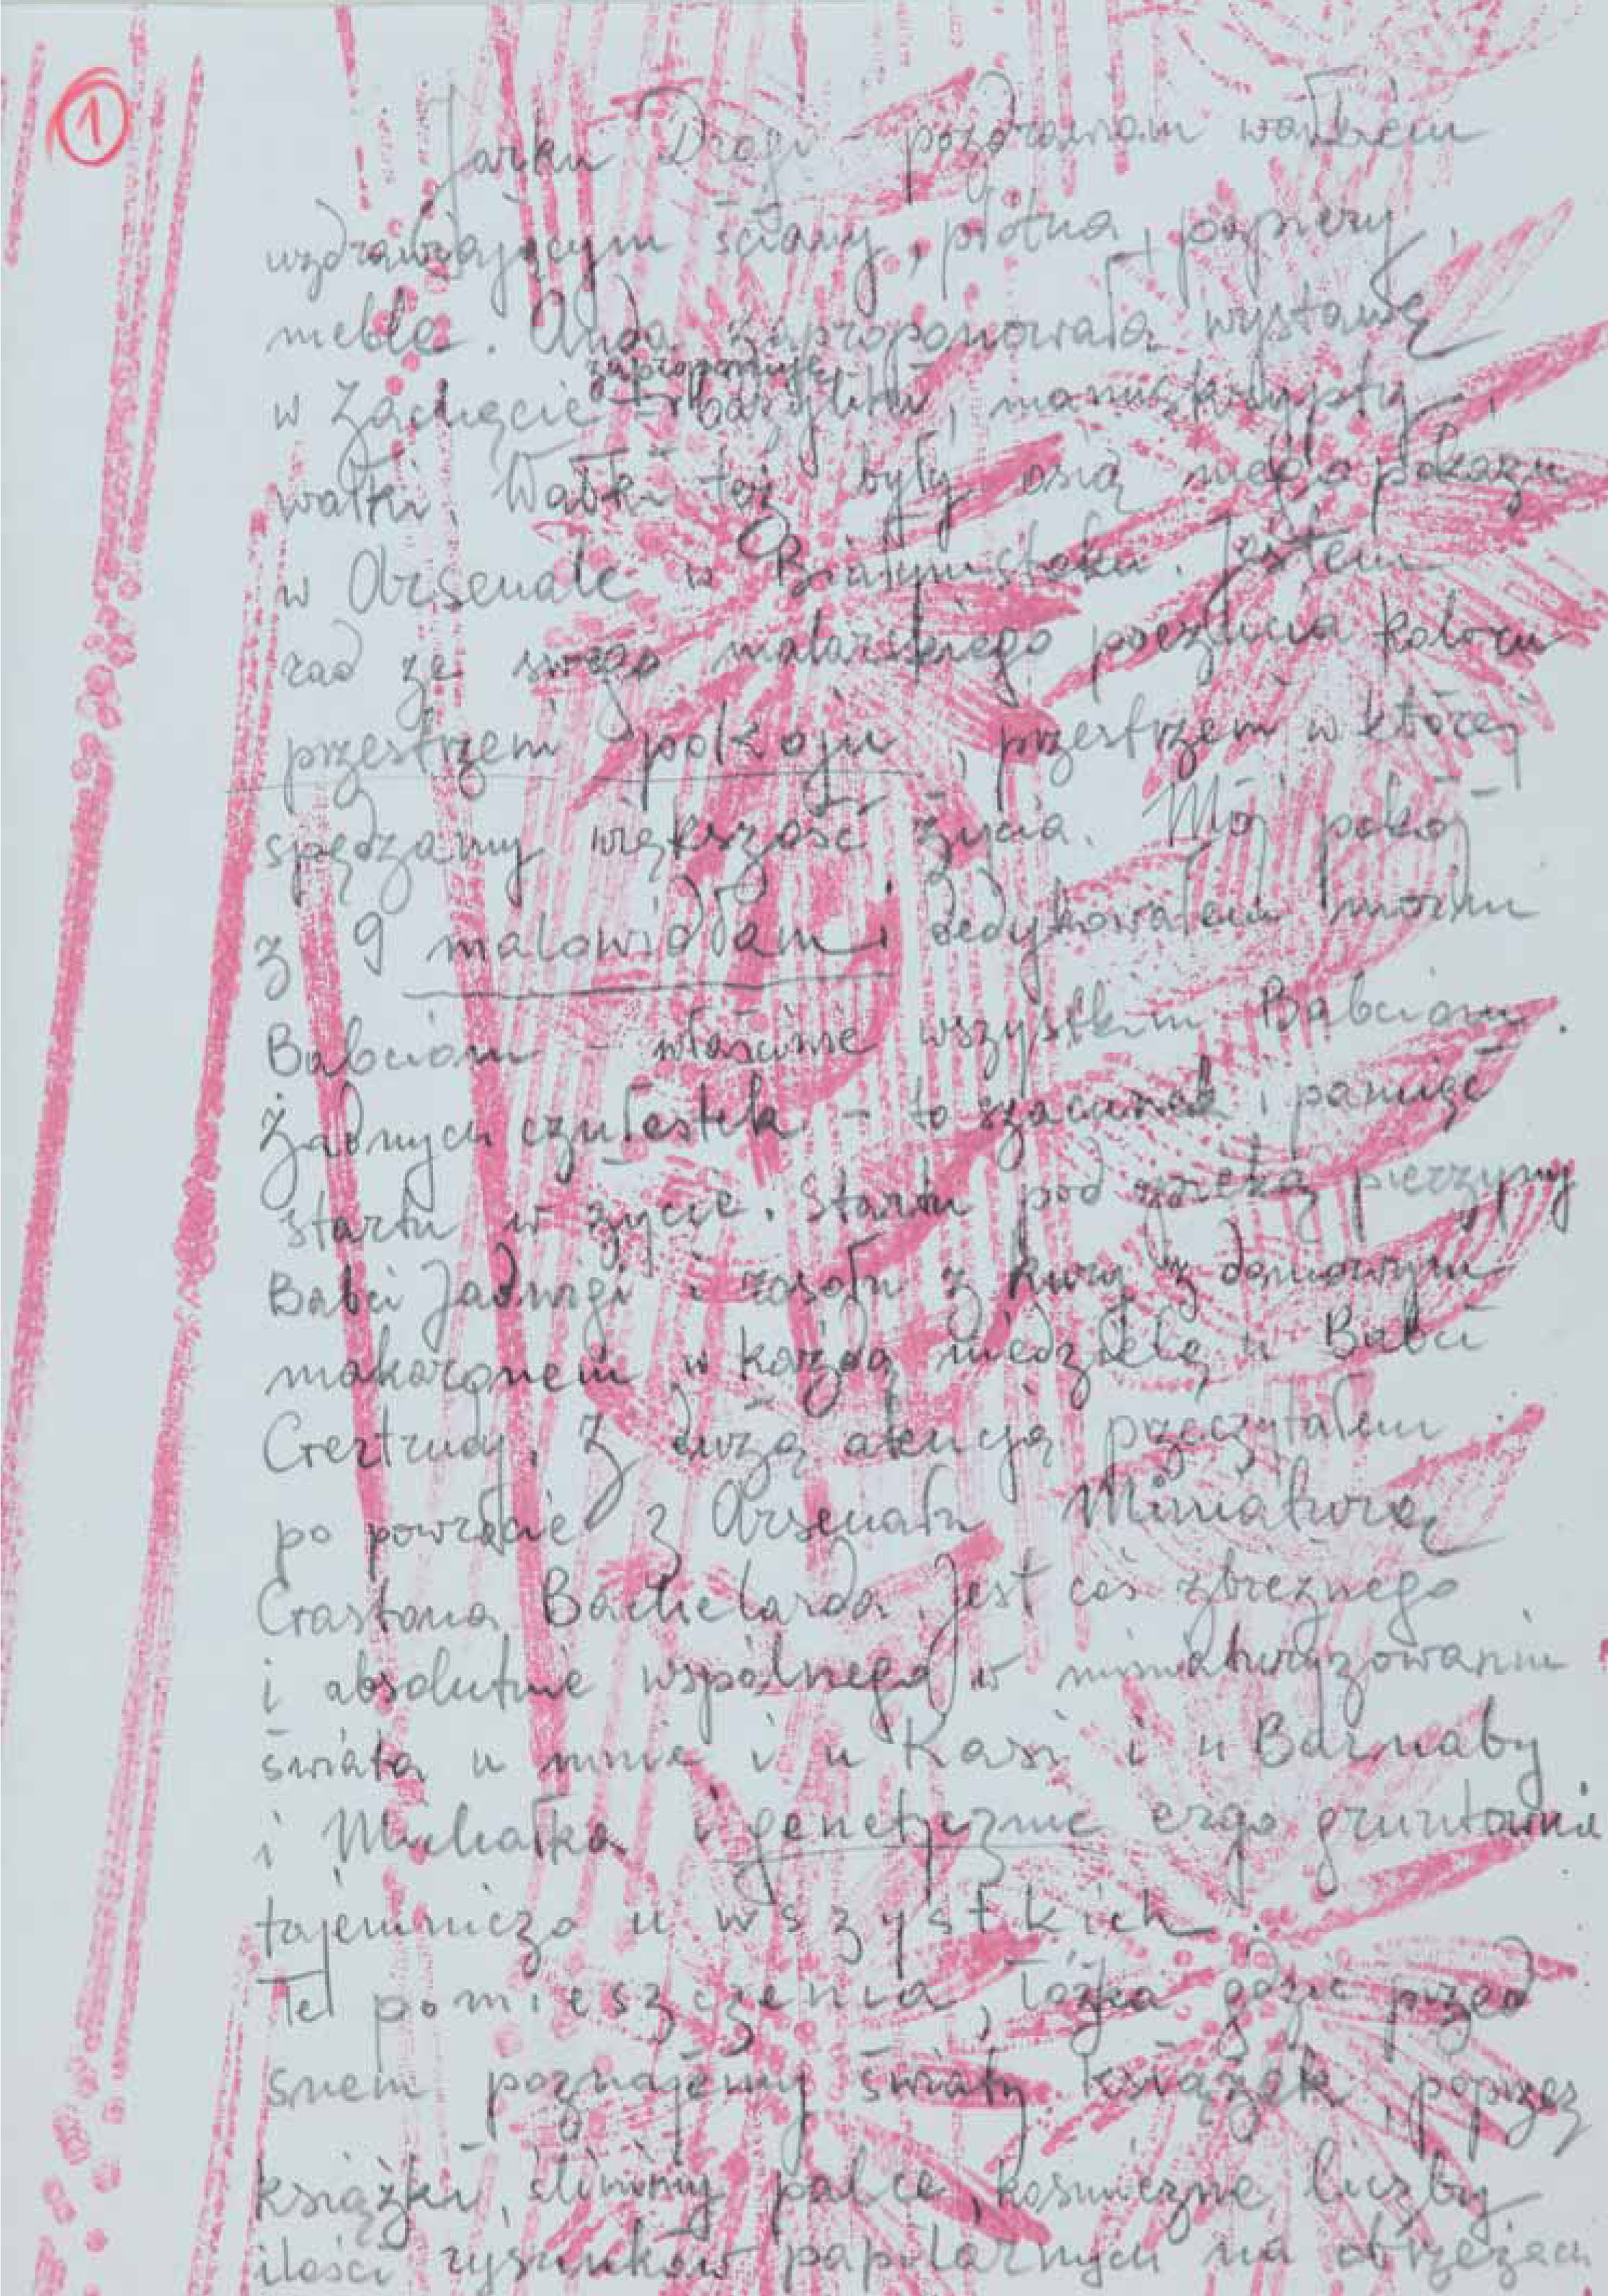 ①
Jarku Drogi - pozdrawiam wałkiem
uzdrawiającym ściany, płótna, papiery,
meble. Anda zaproponowała wystawę
zaproponuję
w Zachęcie - , manuskrypty,
wałki. Wałki też były osią mego pokazu
w Arsenale w Białymstoku. Jestem
rad ze swego malarskiego poczucia koloru
przestrzeni pokoju, przestrzeni w której
spędzamy większość życia. Mój pokój
z 9 malowidłami dedykowałem moim
Babciom - właśnie wszystkim Babciom.
Żadnych czułostek - to szacunek i pamięć
startu w życie. Startu pod pierzyny
Babci Jadwigi i rosołu z kury z domowym
makaronem w każdą niedzielę u Babci
Gertrudy. Z dużą atencją przeczytałem
po powrocie z Arsenału Miniaturę
Gastona Bachelarda. Jest coś zbieżnego
i absolutnie wspólnego w miniaturyzowaniu
świata u mnie i u Kasi i u Barnaby
i Michałka i genetycznie ergo gruntownie
tajemniczo u wszystkich.
Te pomieszczenia, łóżka gdzie przed
snem poznajemy światy książek, poprzez
książki, ślinimy palce, kosmiczne liczby
ilości rysunków papilarnych na obrzeżach